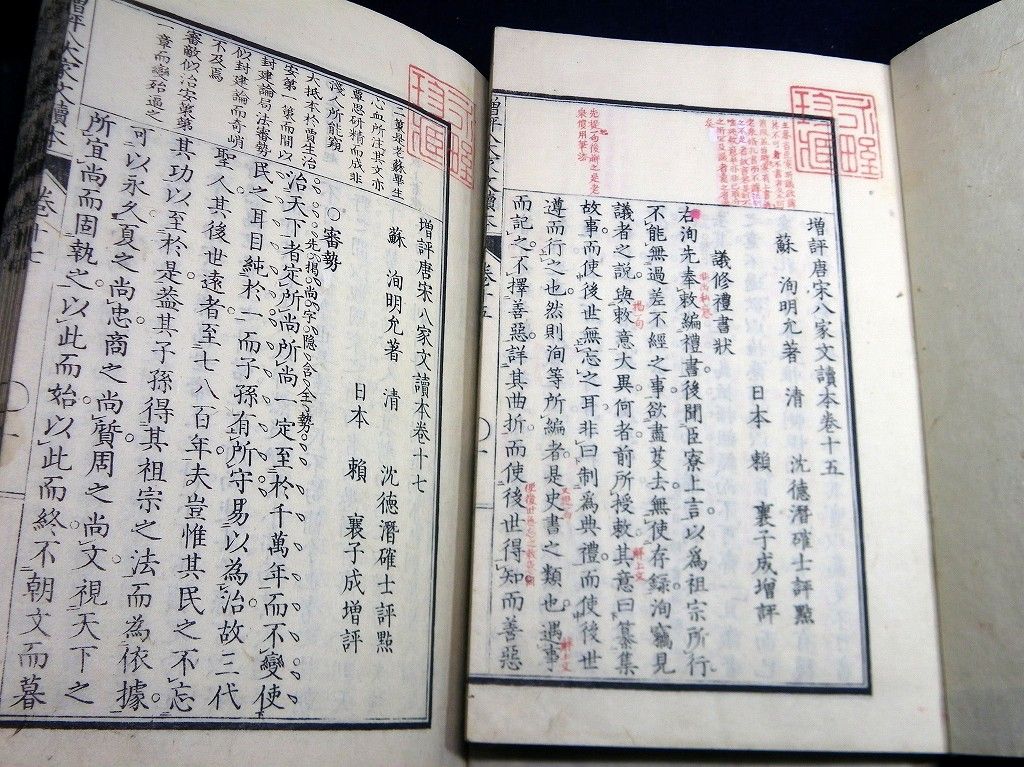 增評唐宋八家文讀本卷十五
蘇　洵明允著　清　沈德潛確士評點
日本　賴　襄子成增評
議修禮書狀
右洵先奉敕編禮書後聞臣寮上言以爲祖宗所行
不能無過差不經之事欲盡芟去無使存錄洵竊見
議者之說與敕意大異何者前所授敕其意曰纂集
故事而使後世無忘之耳非曰制爲典禮而使後世
遵而行之也然則洵等所編者是史書之類也遇事
而記之不擇善惡詳其曲折而使後世得知而善惡
先提一句後辨之是老
泉慣用筆法
解上文
增評八家文讀本
卷十五
增評唐宋八家文讀本卷十七
蘇　洵明允著　清　沈德潛確士評點
日本　賴　襄子成增評
○審勢
先揭尚字隱含全勢
治天下者定所尚所尚一定至於千萬年而不變使
民之耳目純於一而子孫有所守易以爲治故三代
聖人其後世遠者至七八百年夫豈惟其民之不忘
其功以至於是蓋其子孫得其祖宗之法而爲依據
可以永久夏之尚忠商之尚質周之尚文視天下之
所宜尚而固執之以此而始以此而終不朝文而暮
二策是老蘇畢生
心血所注其文亦
覃思研精而成非
淺人所能窺
大抵本於賈生治
安第一策而間以
封建論局法審勢
似封建論而奇峭
不及焉
審敵似治安策第
一章而變殆過之
增評八大家文讀本
卷十七